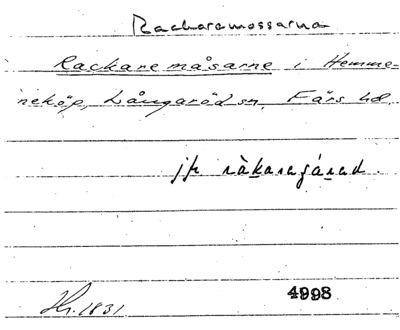 Rackaremossarna
Rackaremåsarne i Hemme=
neköp, Långaröd sn. Färs hd.
jfr ràkaragá̱rad.
Hr. 1831
4998